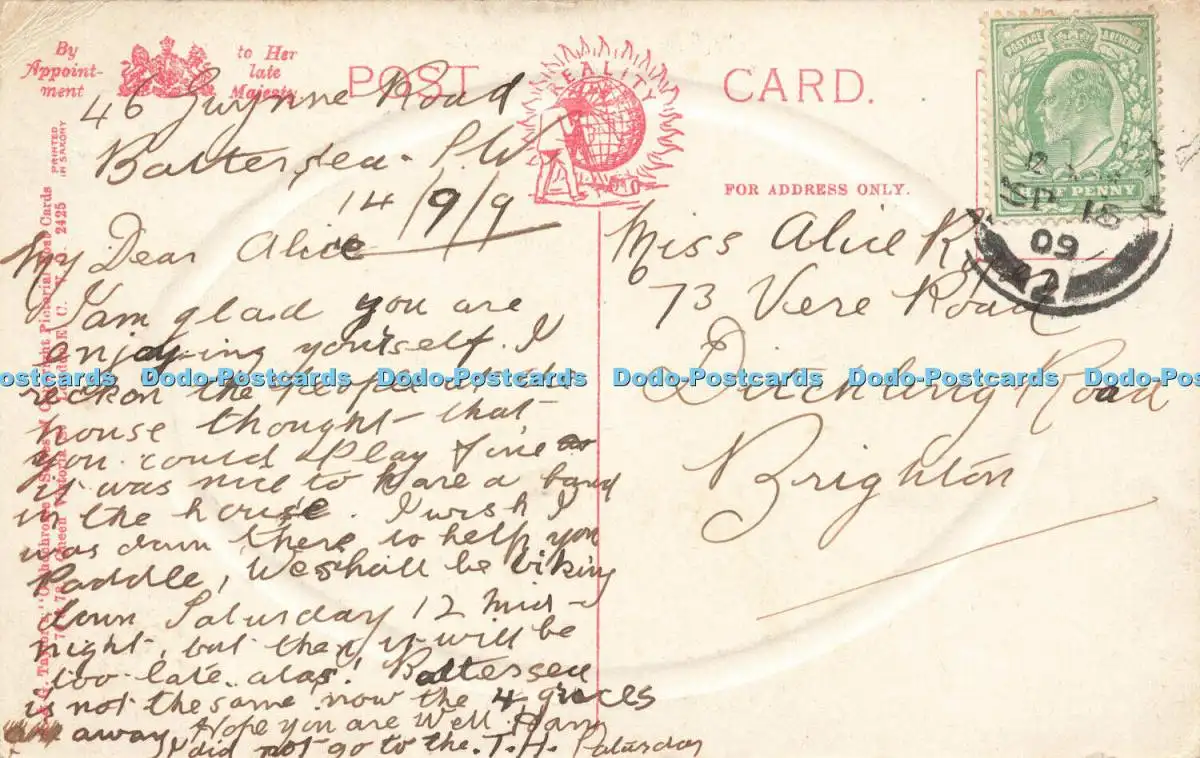 By
Appoint-
ment
to Her
late
Majesty
POST CARD.
REALITY
FOR ADDRESS ONLY.
POSTAGE & REVENUE
HALF PENNY
SP 18
09
PRINTED
IN SAXONY
2425
46 Gwynne Road
Battersea. S.W.
14/9/9
My Dear Alice
I am glad you are
enjoying yourself. I
reckon the people
house thought that
you could play fine
it was nice to have a band
in the house. I wish I
was down there to help you
Paddle, We shall be biking
down Saturday 12 mid-
night, but then it will be
too late. alas! Battersea
is not the same now the 4 graces
away. Hope you are Well
I did not go to the T.H. Saturday
Miss Alice
73 Vere Road
Ditchling Road
Brighton
Dodo-Postcards Dodo-Postcards Dodo-Postcards Dodo-Postcards Dodo-Postcards